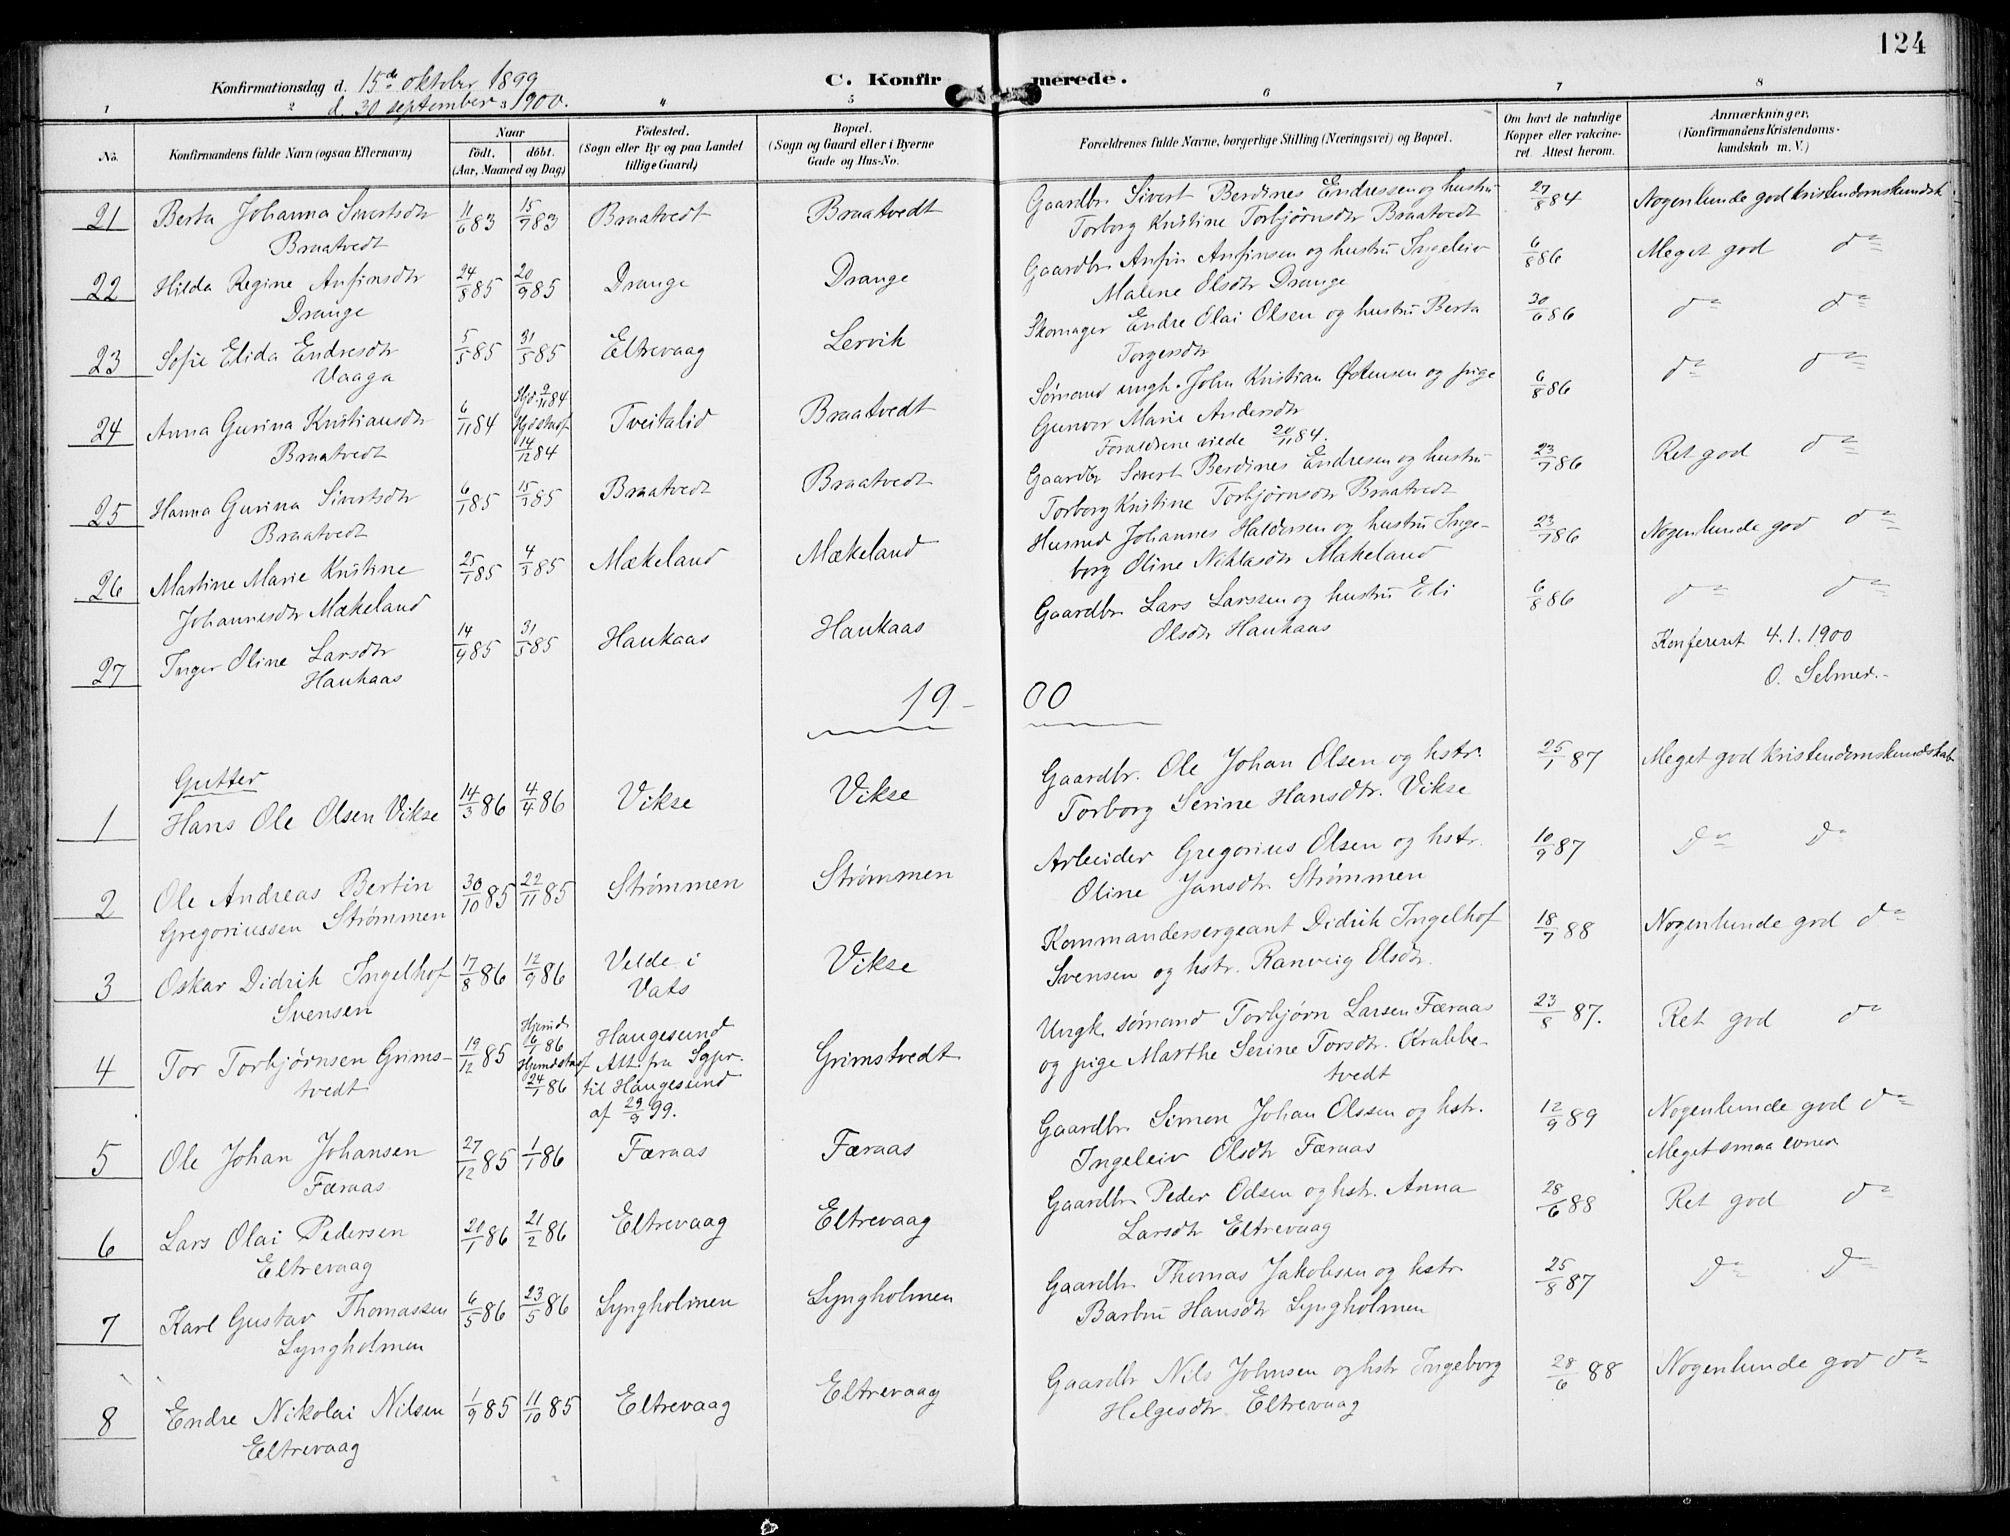 124
Konfirmationsdag d. 15de oktober 1899
d. 30 september 1900.
C. Konfirmerede.
1 2 3 4 5 6 7 8
No.
Konfirmandens fulde Navn (ogsaa Efternavn)
Naar
födt. döbt.
(Aar, Maaned og Dag)
Födested.
(Sogn eller By og paa Landet
tillige Gaard)
Bopæl.
(Sogn og Gaard eller i Byerne
Gade og Hus-No.
Forældrenes fulde Navne, borgerlige Stilling (Næringsvei) og Bopæl.
Om havt de naturlige
Kopper eller vakcine-
ret. Attest herom.
Anmærkninger.
(Konfirmandens Kristendoms-
kundskab m. V.)
21 Berta Johanna Sivertsdtr
Braatvedt
11/6 83 15/7 83 Braatvedt Braatvedt
Gaardbr. Sivert Berdines Endressen og hustru
Torborg Kristine Torbjørnsdtr Braatvedt
27/8 84 Nogenlunde god kristendomskundsk
22 Hilda Regine Anfinsdtr
Drange
24/8 85 20/9 85 Drange Drange
Gaardbr. Anfin Anfinsen og hustru Ingeleiv
Malene Olsdtr Drange
6/8 86 Meget god do
23 Sofie Elida Endresdtr
Vaaga
5/5 85 31/5 85 Eltrevaag Lervik
Skomager Endre Olai Olsen og hustru Berta
Torgersdtr
30/6 86 do do
24 Anna Gurina Kristiansdtr
Braatvedt
6/11 84 Hjd. 9/11 84
Hjdst.af
14/12 84
Tveitalid Braatvedt
Sømand ungk. John Kristian Østensen og pige
Gunvor Marie Andersdtr
Forældrene viede 20/11 84.
6/8 86 do do
25 Hanna Gurina Sivertsdtr
Braatvedt
6/1 85 15/2 85 Braatvedt Braatvedt
Gaardbr Sivert Berdines Endresen og hustru
Torborg Kristine Torbjørnsdtr Braatvedt
23/7 86 Ret god do
26 Martine Marie Kristine
Johannesdtr Mækeland
25/1 85 4/3 85 Mækeland Mækeland
Husmd Johannes Haldorsen og hustru Inge-
borg Oline Niklasdtr Mækeland
23/7 86 Nogenlunde god do
27 Inger Oline Larsdtr
Haukaas
14/4 85 31/5 85 Haukaas Haukaas
Gaardbr. Lars Larssen og hustru Eli
Olsdtr Haukaas
6/8 86 do do
Konfereret 4.1.1900
O. Selmer.
19-00
Gutter
1 Hans Ole Olsen Vikse
14/3 86 4/4 86 Vikse Vikse
Gaardbr. Ole Johan Olsen og hstr.
Torborg Serine Hansdtr. Vikse
25/1 87 Meget god kristendomskundskab
2 Ole Andreas Bertin
Gregoriussen Strømmen
30/10 85 22/11 85 Strømmen Strømmen
Arbeider Gregorius Olsen og hstr.
Oline Jansdtr. Strømmen
10/9 87 do do
3 Oskar Didrik Ingelhof
Svensen
17/8 86 12/9 86 Velde i
Vats
Vikse
Kommandersergeant Didrik Ingelhof
Svensen og hstr. Ranveig Olsdtr.
18/7 88 Nogenlunde god do
4 Tor Torbjørnsen Grims-
tvedt
19/12 85 Hjemd.
16/1 86
Hjemdst.af
24/1 86
Haugesund
Att. fra Sgpr.
til Haugesund
af 29/9 99.
Grimstvedt
Ungk. sømand Torbjørn Larsen Færaas
og pige Marthe Serine Torsdtr. Krabbe-
tvedt
23/8 87. Ret god do
5 Ole Johan Johansen
Færaas
27/12 85 1/1 86 Færaas Færaas
Gaardbr. Simon Johan Olssen og hstr.
Ingeleiv Olsdtr Færaas
12/9 89 Nogenlunde god do
Meget smaa evner
6 Lars Olai Pedersen
Eltrevaag
20/1 86 21/2 86 Eltrevaag Eltrevaag
Gaardbr. Peder Odsen og hstr. Anna
Larsdtr Eltrevaag
28/6 88 Ret god do
7 Karl Gustav Thomassen
Lyngholmen
6/5 86 23/5 86 Lyngholmen Lyngholmen
Gaardbr Thomas Jakobsen og hstr
Barbru Hansdtr Lyngholmen
25/8 87 do do
8 Endre Nikolai Nilsen
Eltrevaag
1/9 85 11/10 85 Eltrevaag Eltrevaag
Gaardbr Nils Johnsen og hstr Ingeborg
Helgesdtr. Eltrevaag
28/6 88 Nogenlunde god do